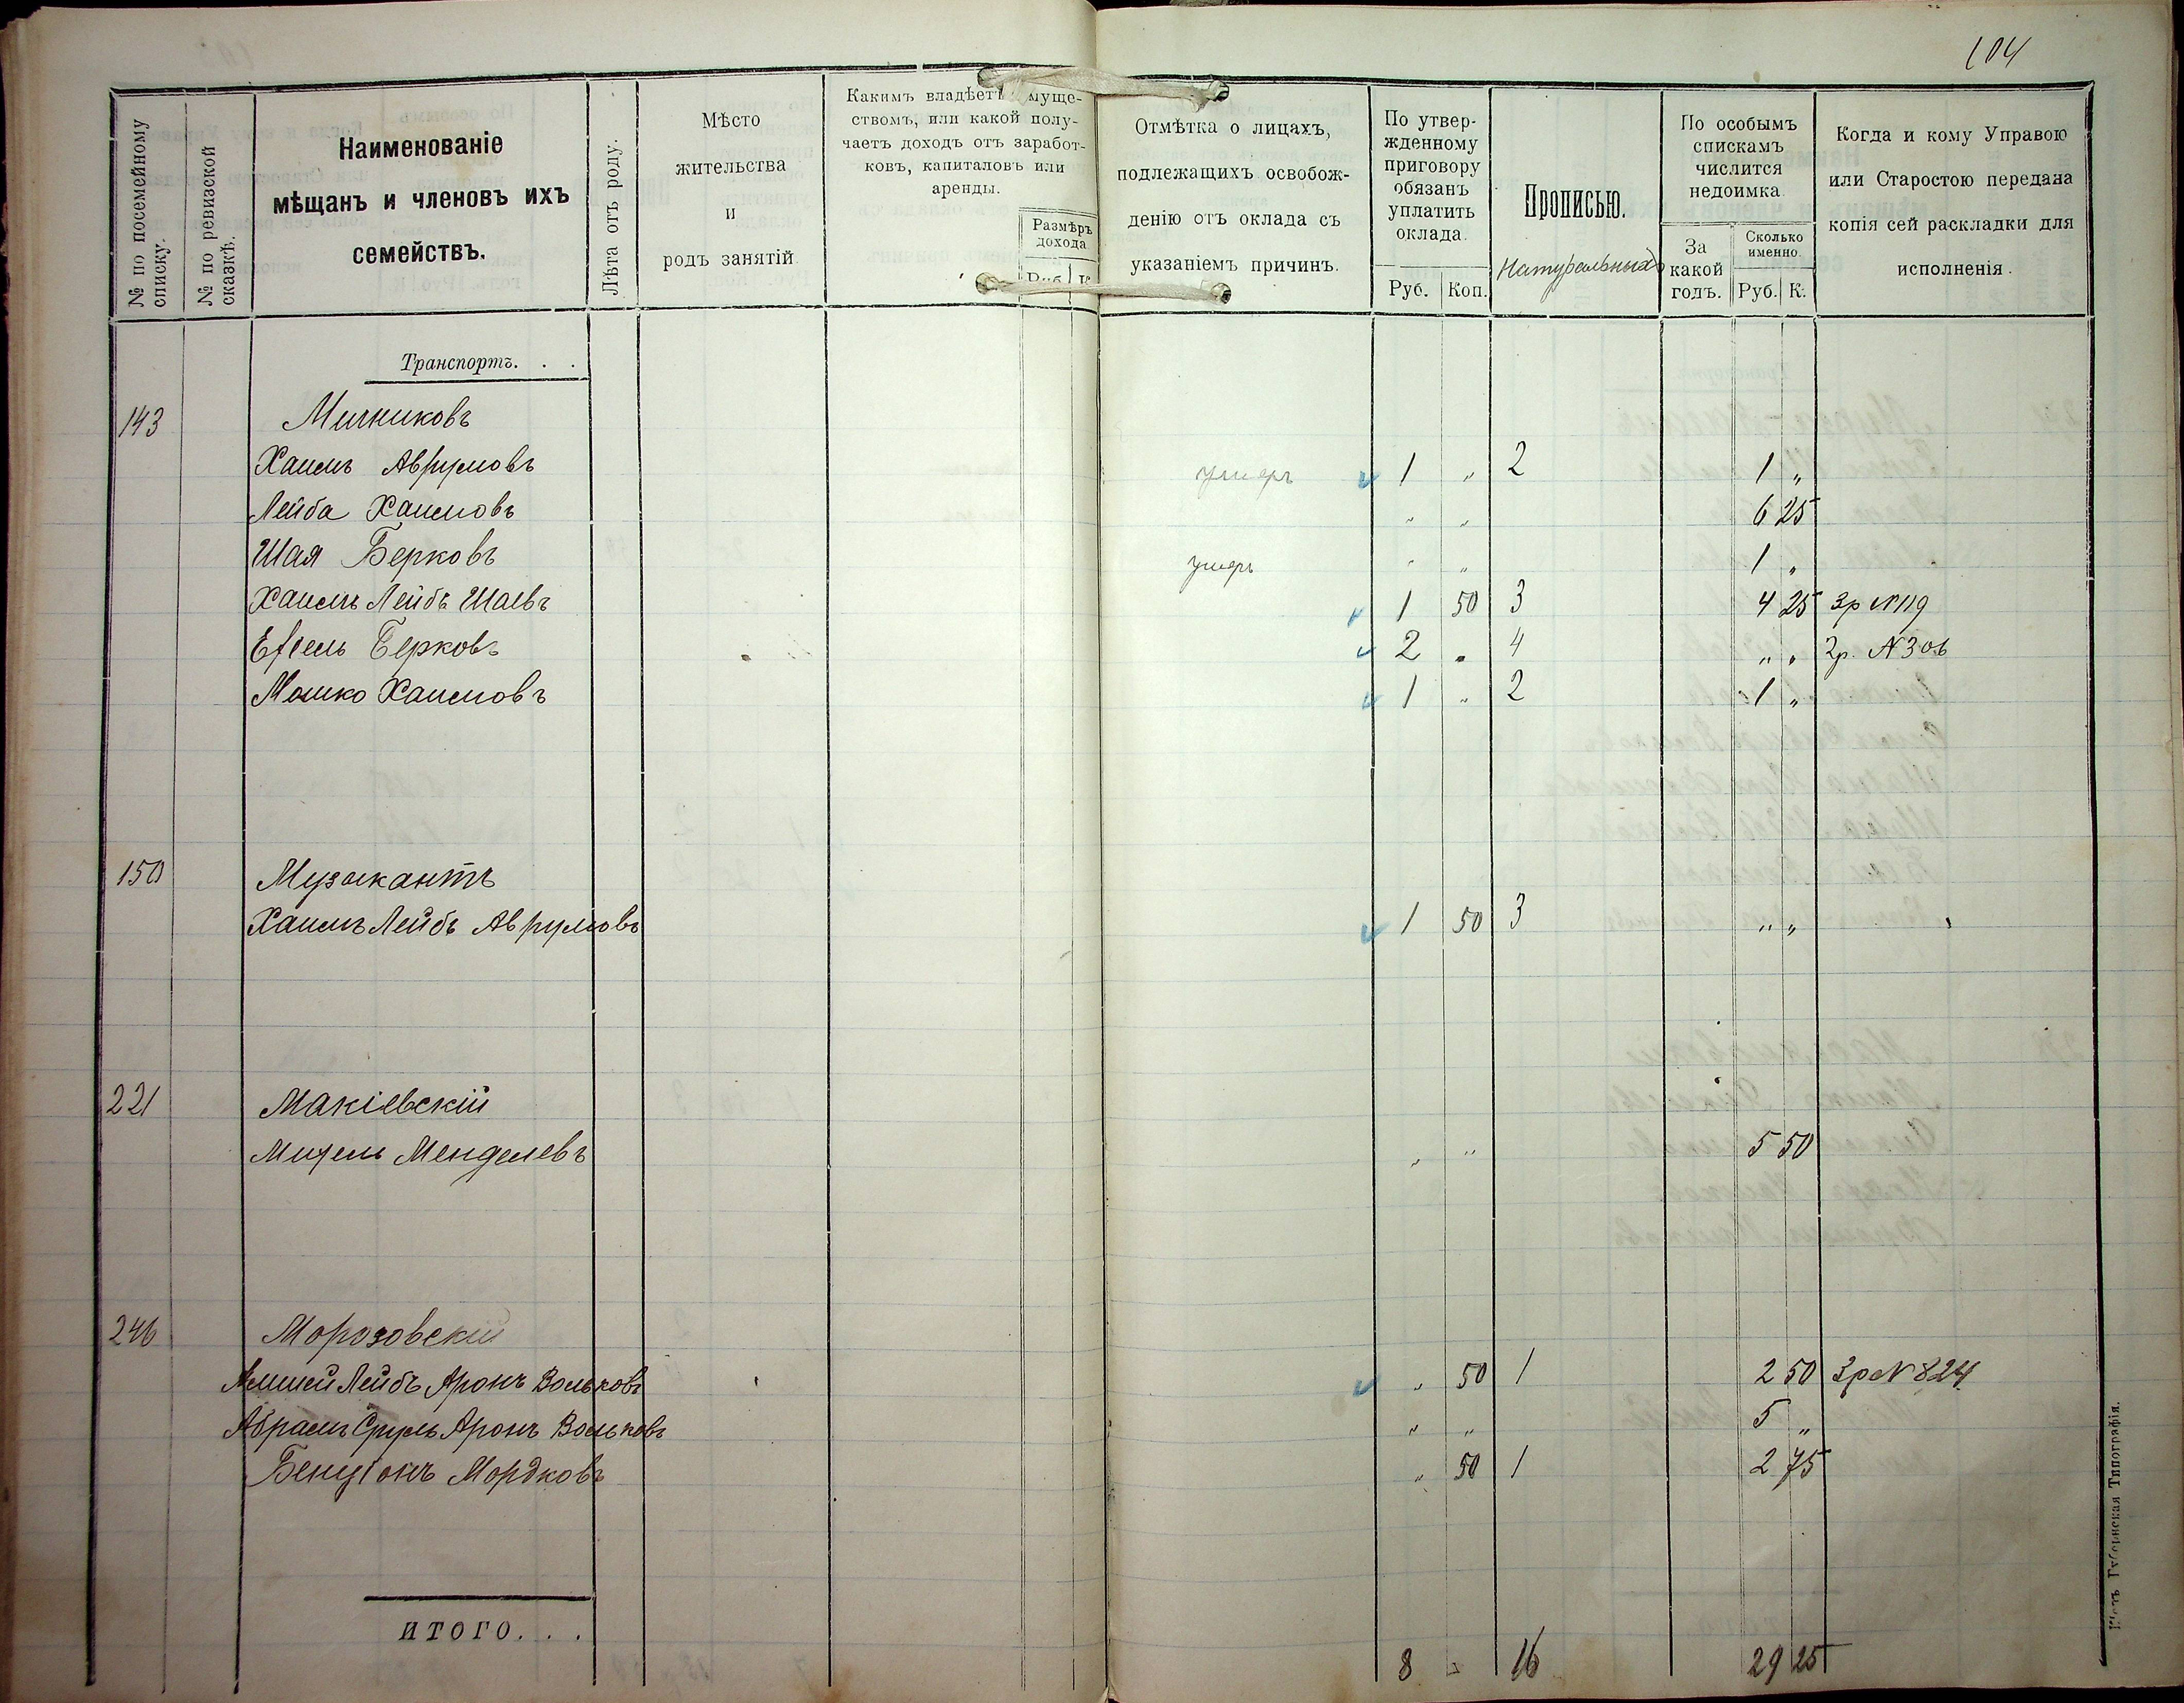 104
№ по посемейному списку.
№ по ревизской сказкѣ.
Наименованіе
мѣщанъ и членовъ ихъ
семействъ.
Лѣта отъ роду.
Мѣсто
жительства
и
родъ занятій
Какимъ владѣетъ
ствомъ, или какой полу-
чаетъ доходъ отъ заработ-
ковъ, капиталовъ или
аренды.
Размѣръ
дохода
Отмѣтка о лицахъ,
подлежащихъ освобож-
денію отъ оклада съ
указаніемъ причинъ.
По утвер-
жденному
приговору
обязанъ
уплатить
оклада.
Руб. Коп.
Прописью.
Натуральныхъ
По особымъ
спискамъ
числится
недоимка.
За
какой
годъ.
Сколько
именно.
Руб. К.
Когда и кому Управою
или Старостою передана
копія сей раскладки для
исполненія.
Транспортъ. . .
143 Мичниковъ
Хаимъ Аврумовъ умеръ 1 „ 2 1 „
Лейба Хаимовъ „ „ 6 25
Шая Берковъ умеръ „ „ 1 „
Хаимъ Лейбъ Шаевъ 1 50 3 4 25 3р №119
Берковъ 2 „ 4 „ „ 2р. №306
Мошко Хаимовъ 1 „ 2 1 „
150 Музыкантъ
Хаимъ Лейбъ Аврумовъ 1 50 3 „ „
221 Макіевскій
Менделевъ „ „ 5 50
246 Морозовскій
Лейбъ Аронъ Вольковъ „ 50 1 2 50 3р № 824
Абрамъ Сруль Аронъ Вольковъ „ „ 5 „
Бенціонъ Мордковъ „ 50 1 2 75
ИТОГО. . . 8 „ 16 29 25
Губернская Типографія.